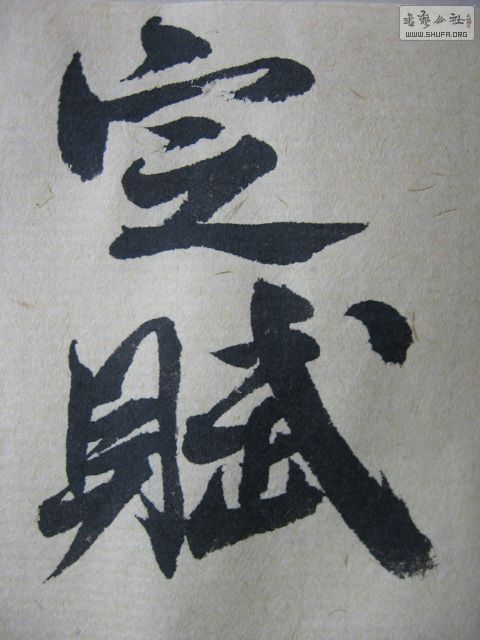 書藝公社
WWW.SHUFA.ORG
定
賦